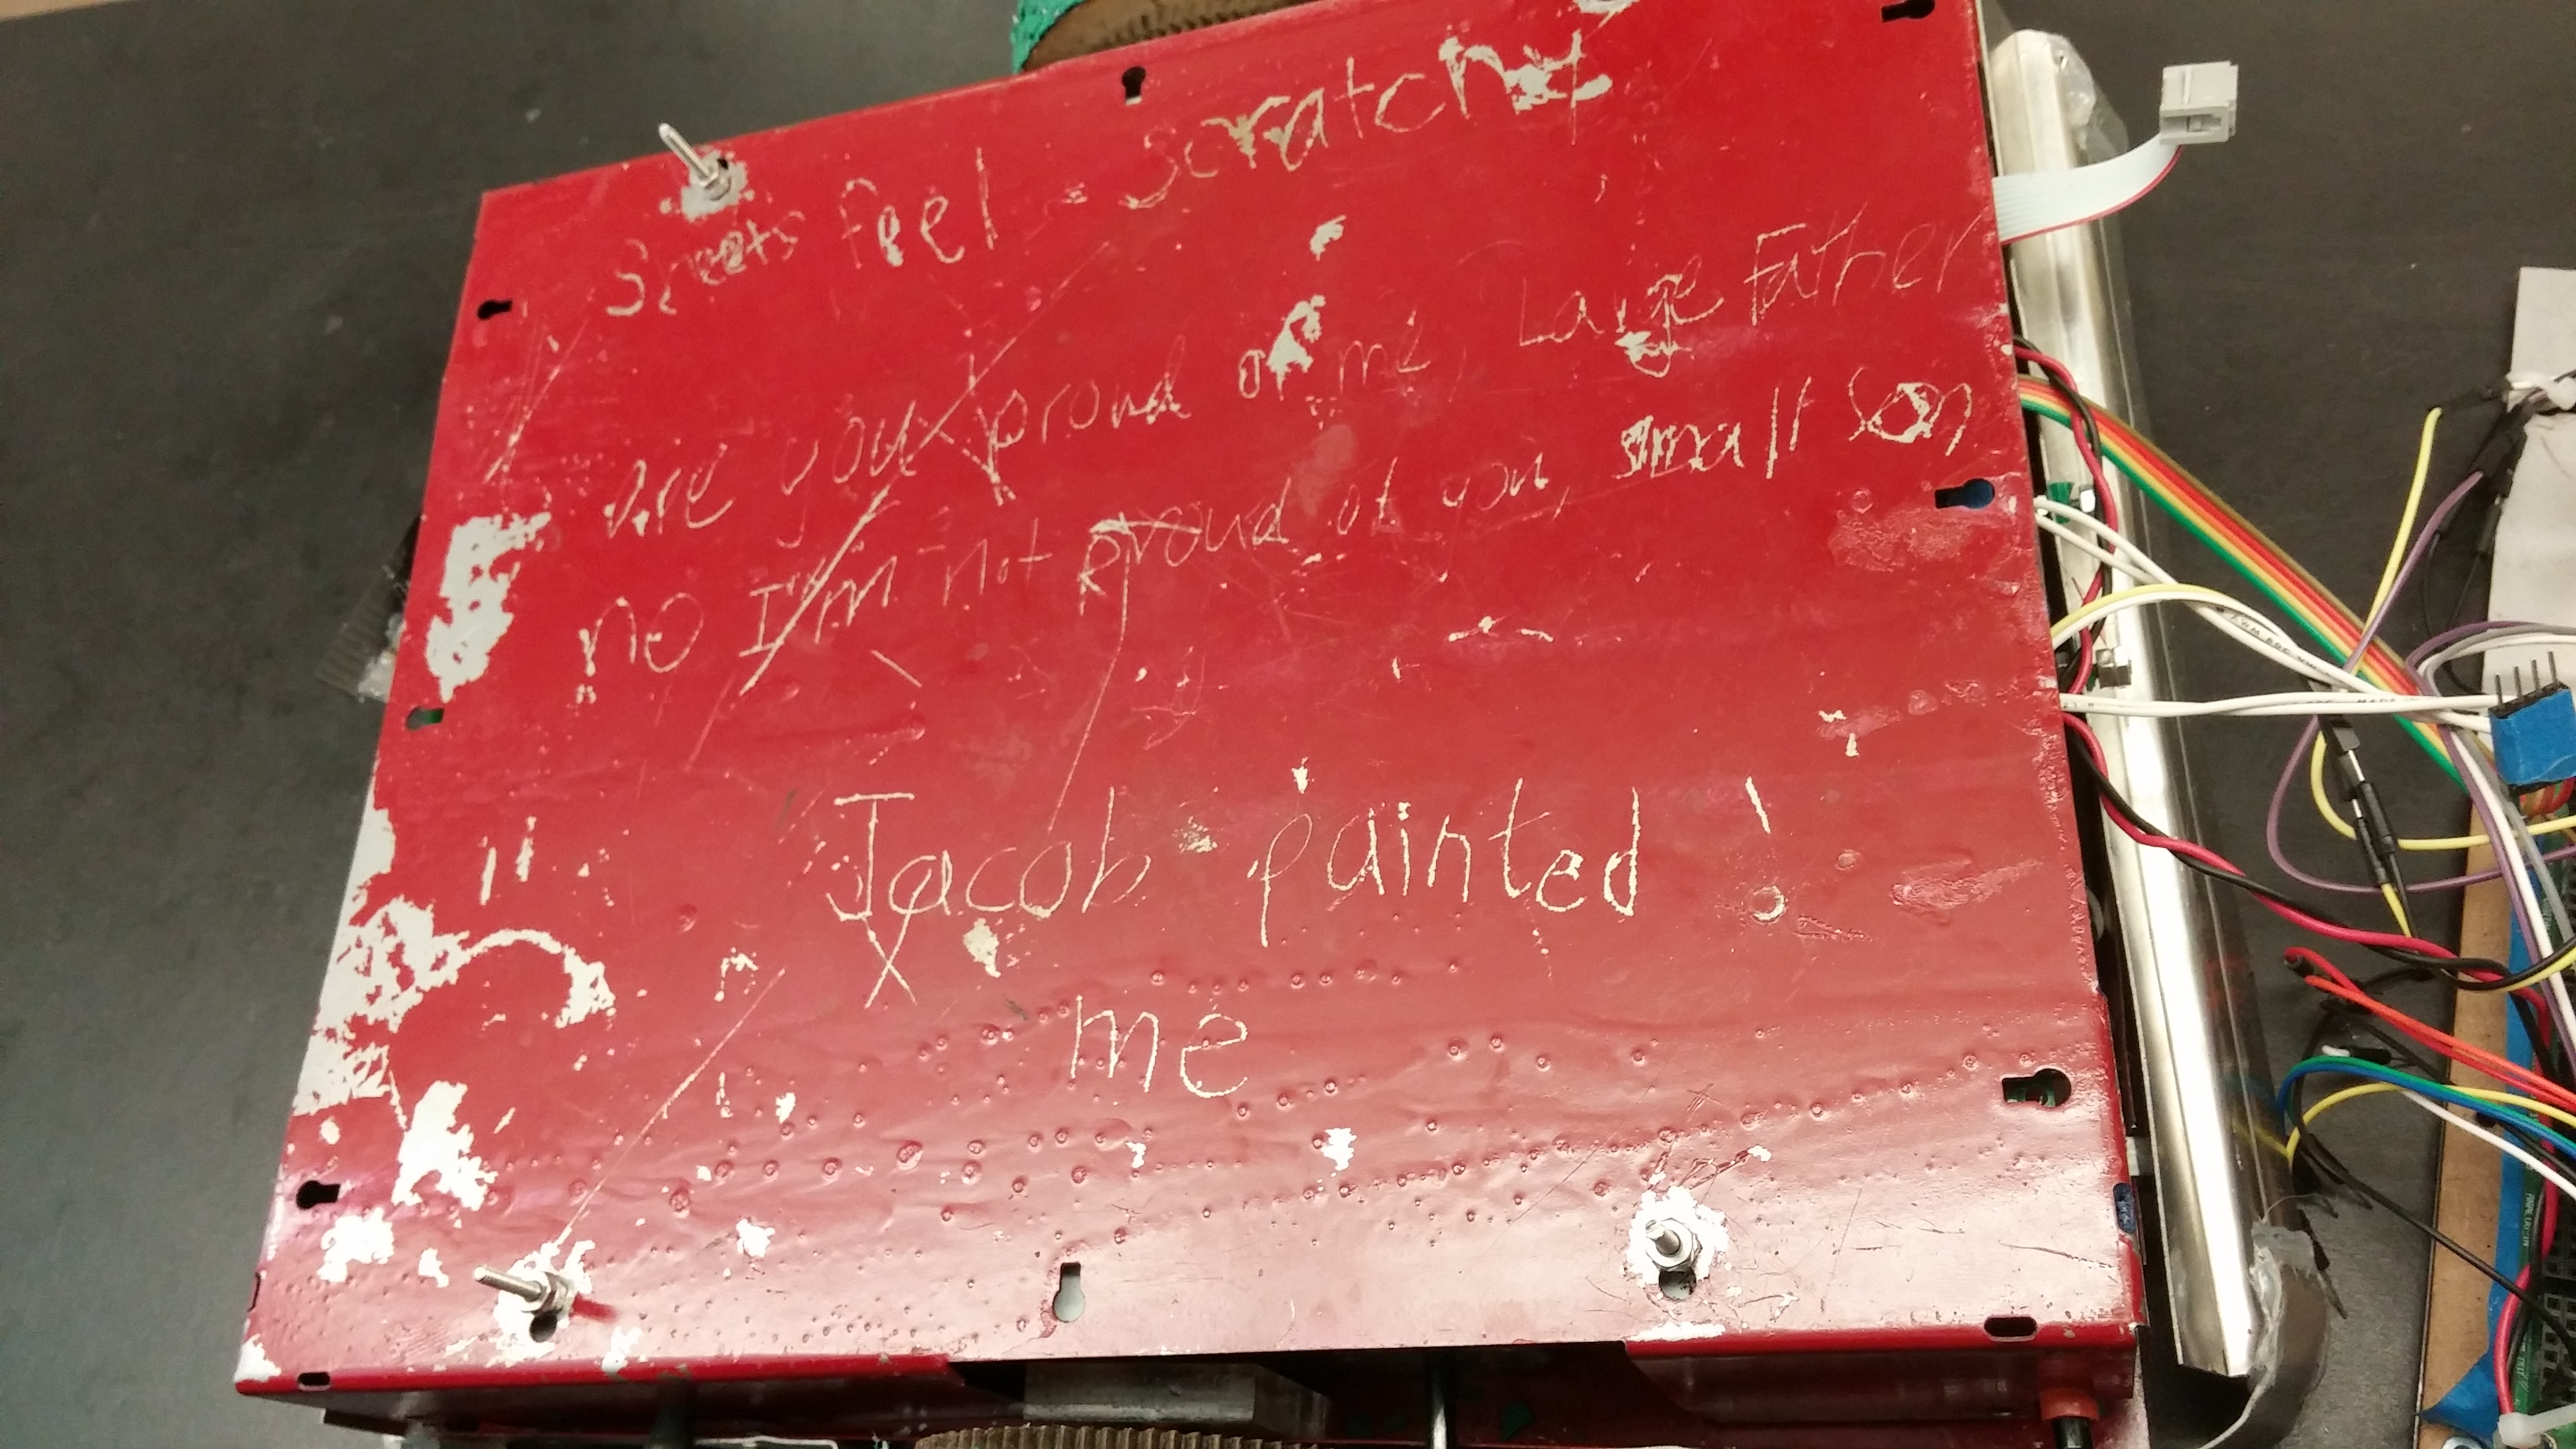 Sheets feel - scratchy
Are you proud of me, Large Father
no I'm not proud of you, small son
Jacob painted !
me